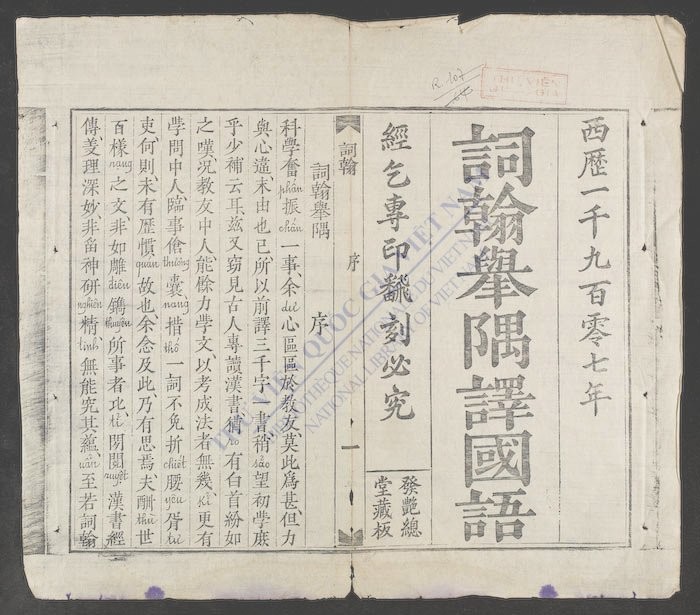 R.107
西歷一千九百零七年
詞翰舉隅譯國語
經乞專印飜刻必究
發艷總
堂藏板
詞翰 序 一
詞翰舉隅 序
科學奮phấn振chấn一事、余dư心區區於教友、莫此爲甚、但力
與心違、未由也已、所以前譯三千字一書、稍sảo望初學庻
乎少補云耳、兹又窈見古人專讀漢書、猶有白首紛如
之嘆、况教友中人、能餘力學文、以考成法者無幾kỉ、更有
學問中人、臨事傖thương囊nang、措thố一詞不免折chiết腰yêu、胥tư
吏、何則、未有歷慣quán故也、余念及此、乃有思焉、夫酬thù世
百樣之文、非如雕điêu鐫thuyên所事者比、閉閱漢書經
傳、姜理深妙、非畱神研nghiên精tinh、無能究其蘊uẩn、至若詞翰
THƯ VIỆN QUỐC GIA VIỆT NAM
BIBLIOTHÈQUE NATIONALE DU VIETNAM
NATIONAL LIBRARY OF VIETNAM